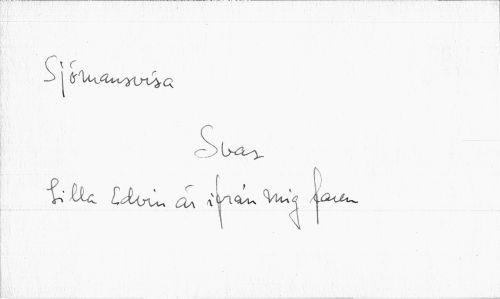 Sjömansvisa
Svar
Lilla Edvin är ifrån mig faren